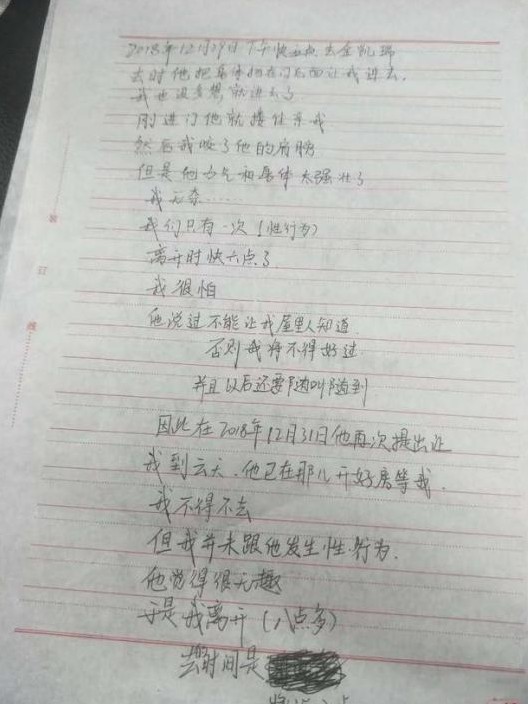 2018年12月29日下午快五点去金凯瑞
去时他把身体挡在门后面让我进去.
我也没多想,就进去了
刚进门他就搂住亲我
然后我咬了他的肩膀
但是他力气和身体太强壮了
我无奈……
我们只有一次(性行为)
离开时快六点了
我很怕
他说过不能让我屋里人知道
否则我将不得好过
并且以后还要随叫随到
因此在2018年12月31日他再次提出让
我到云天.他已在那儿开好房等我.
我不得不去
但我并未跟他发生性行为.
他觉得很无趣
于是我离开(八点多)
去时间是
装
订
线